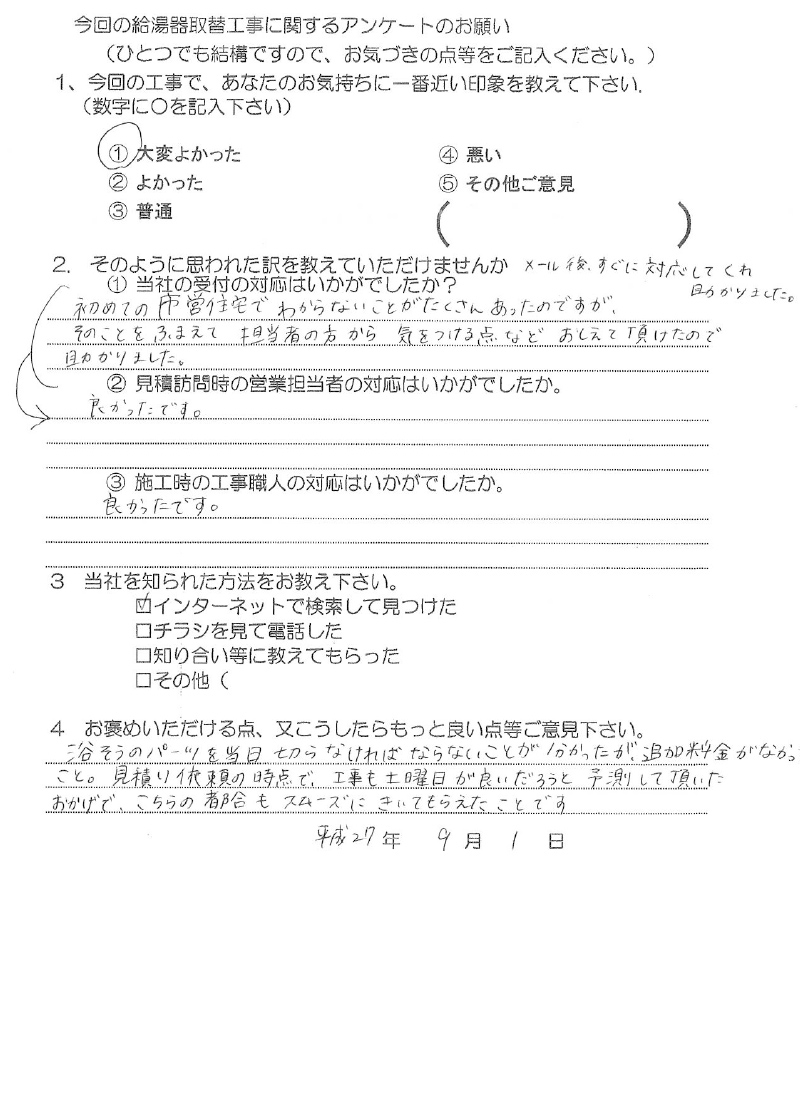 今回の給湯器取替工事に関するアンケートのお願い
(ひとつでも結構ですので、お気づきの点等をご記入ください。)
1、今回の工事で、あなたのお気持ちに一番近い印象を教えて下さい.
(数字に○を記入下さい)
① 大変よかった
② よかった
③ 普通
④ 悪い
⑤ その他ご意見
( )
2. そのように思われた訳を教えていただけませんか
メール後、すぐに対応してくれ
助かりました。
① 当社の受付の対応はいかがでしたか?
初めての市営住宅でわからないことがたくさんあったのですが、
そのことをふまえて 担当者の方から 気をつける点など おしえて頂けたので
助かりました。
② 見積訪問時の営業担当者の対応はいかがでしたか。
良かったです。
③ 施工時の工事職人の対応はいかがでしたか。
良かったです。
3 当社を知られた方法をお教え下さい。
☑インターネットで検索して見つけた
□チラシを見て電話した
□知り合い等に教えてもらった
□その他(
4 お褒めいただける点、又こうしたらもっと良い点等ご意見下さい。
浴そうのパーツを当日切らなければならないことが分かったが、追加料金がなかっ
こと。見積り依頼の時点で、工事も土曜日が良いだろうと予測して頂いた
おかげで、こちらの都合もスムーズにきいてもらえたことです
平成27年 9月 1日